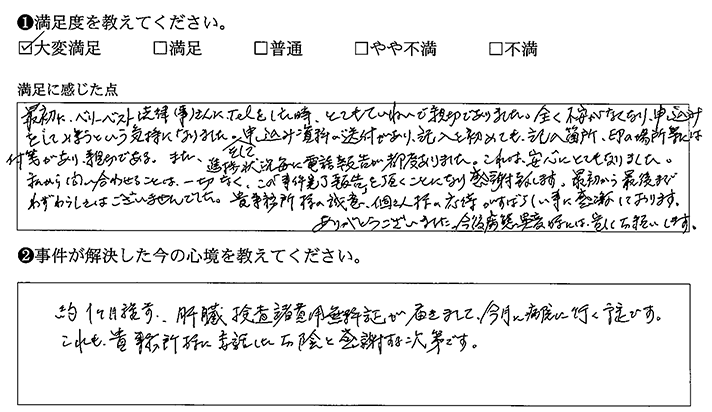 ❶満足度を教えてください。
☑大変満足 □満足 □普通 □やや不満 □不満
満足に感じた点
最初に、ベリーベスト法律(事)さんにTelをした時、とてもていねいで親切でありました。全く不安がなくなり、申込み
をしてみようという気持になりました。申込み資料の送付があり、記入と初めても、記入箇所、印の場所等には
付箋があり、親切である。また、進捗状況毎に電話報告が都度ありました。これは、安心にとてもなりました。
私から問い合わせることは、一切なく、この「事件完了報告」を頂くことになり感謝致します。最初から最後まで
わずらわしさはございませんでした。貴事務所様の誠意、個々人様の応待がすばらしい事に感謝しております。
ありがとうございました。今後病態異変時には、宜しくお願いします。
❷事件が解決した今の心境を教えてください。
約1ケ月程前、肝臓検査諸費用無料証が届きまして、今月に病院に行く予定です。
これも、貴事務所様に委託したお陰と感謝する次第です。